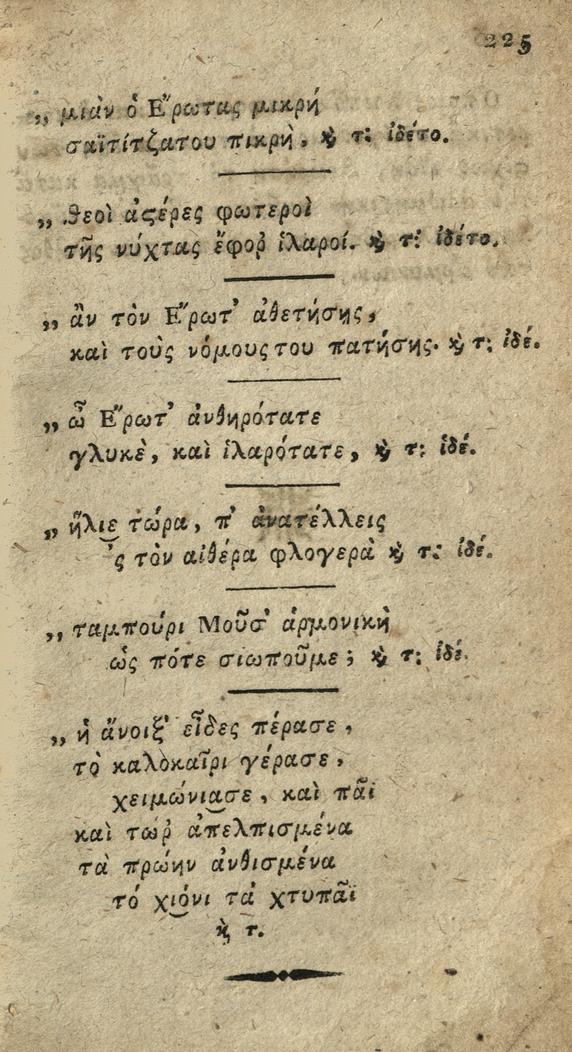 225
„ μιὰν ὁ Ἔρωτας μικρή
σαϊτίτζατου πικρὴ, ϗ τ: ἰδέτο.
„ θεοὶ ἀϛέρες φωτεροὶ
τῆς νύχτας ἔφοῤ ἱλαροί. ϗ τ: ἰδέτο.
„ ἂν τὸν Ἔρωτ' ἀθετήσῃς,
καὶ τοὺς νόμους του πατήσῃς. ϗ τ: ἰδέ.
„ ὦ Ἔρωτ' ἀνθηρότατε
γλυκὲ, καὶ ἱλαρότατε, ϗ τ: ἰδέ.
„ ἥλιε τώρα, π' ἀνατέλλεις
'ς τὸν αἰθέρα φλογερὰ ϗ τ: ἰδέ.
„ ταμπούρι Μοῦσ' ἁρμονικὴ
ὡς πότε σιωποῦμε; ϗ τ: ἰδέ.
„ ἡ ἄνοιξ' εἶδες πέρασε,
τὸ καλοκαῖρι γέρασε,
χειμώνιασε, καὶ πᾶϊ
καὶ τώῤ ἀπελπισμένα
τὰ πρώην ἀνθισμένα
τό χιόνι τὰ χτυπᾶϊ
ϗ τ.